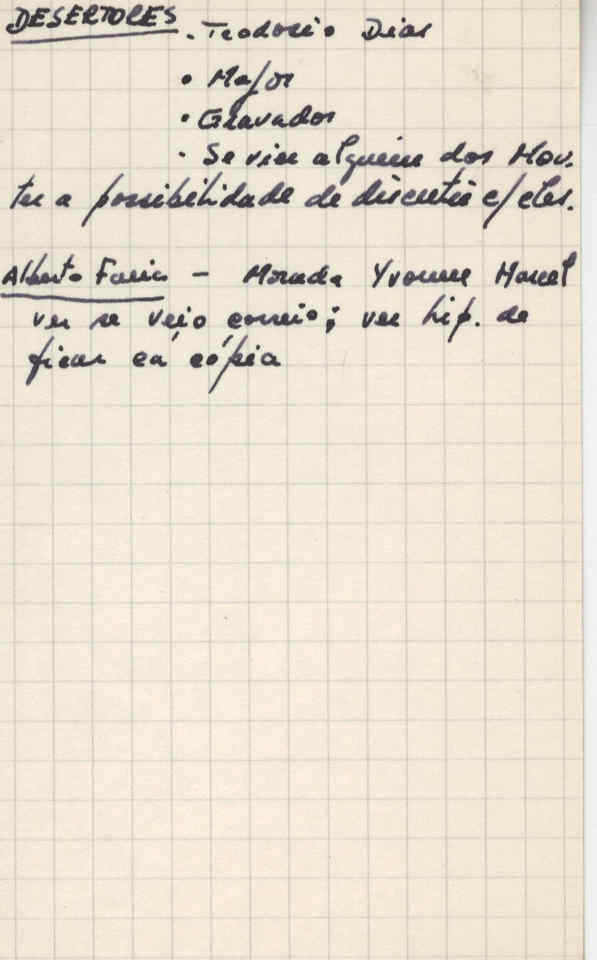 DESERTORES . Teodosio Dias
• Major
• Gravador
• Se vier alguem dos Mov.
ter a possibilidade de discutir c/ eles.
Alberto Faria – Morada Yvonne Marcel
ver se veio correio; ver hip. de
ficar cá cópia